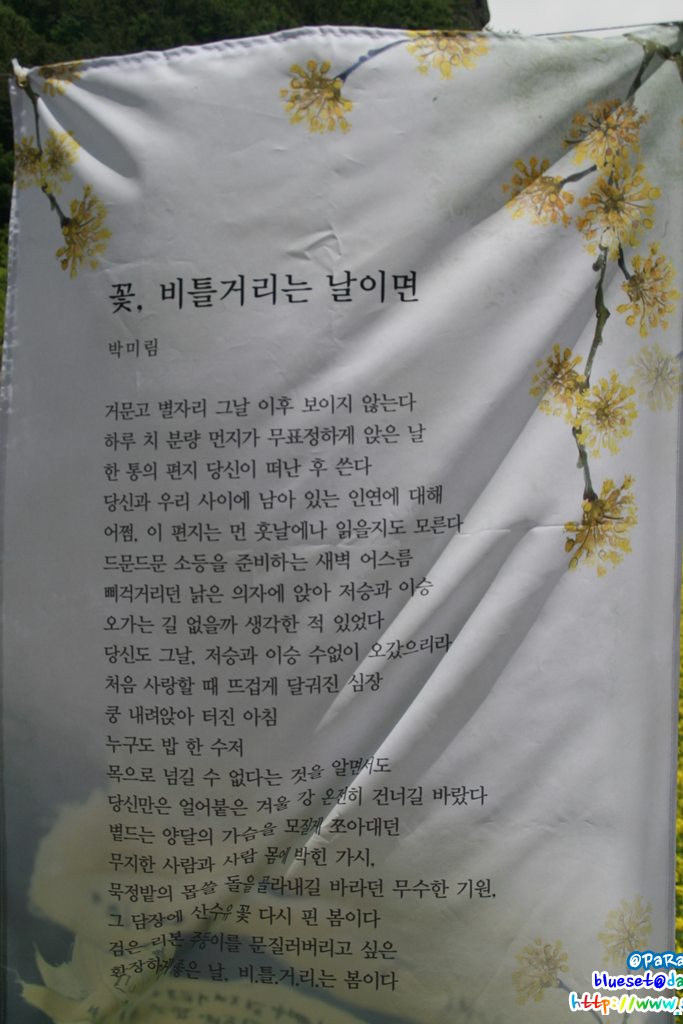 꽃, 비틀거리는 날이면
박미림
거문고 별자리 그날 이후 보이지 않는다
하루 치 분량 먼지가 무표정하게 앉은 날
한 통의 편지 당신이 떠난 후 쓴다
당신과 우리 사이에 남아 있는 인연에 대해
어쩜, 이 편지는 먼 훗날에나 읽을지도 모른다
드문드문 소등을 준비하는 새벽 어스름
삐걱거리던 낡은 의자에 앉아 저승과 이승
오가는 길 없을까 생각한 적 있었다
당신도 그날, 저승과 이승 수없이 오갔으리라
처음 사랑할 때 뜨겁게 달궈진 심장
쿵 내려앉아 터진 아침
누구도 밥 한 수저
목으로 넘길 수 없다는 것을 알면서도
당신만은 얼어붙은 겨울 강 온전히 건너길 바랐다
볕드는 양달의 가슴을 모질게 쪼아대던
무지한 사람과 사람 몸에 박힌 가시,
묵정밭의 몹쓸 돌을 골라내길 바라던 무수한 기원,
그 담장에 산수유 꽃 다시 핀 봄이다
검은 리본 주둥이를 문질러버리고 싶은
환장하게 좋은 날, 비.틀.거.리.는 봄이다
@PaRa
blueset@da
http://www.